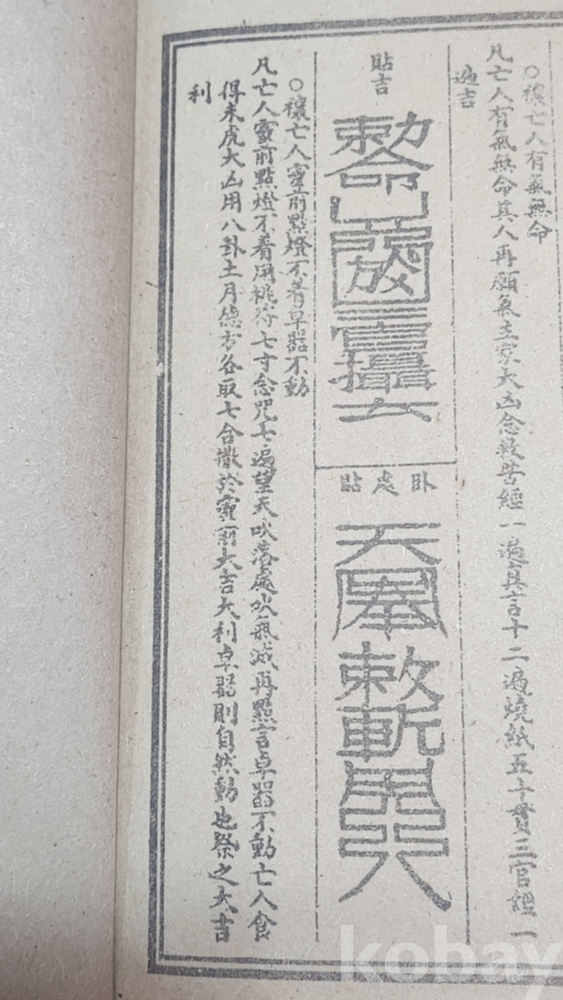 ○禳亡人有氣無命
凡亡人有氣無命其人再願氣主家大凶念救苦經一遍真言十二遍燒紙五十貫三官經一
遍吉
貼吉
勅令
三官攝
卦處貼
天
奉敕斬
○禳亡人靈前點燈不着卓器不動
凡亡人靈前點燈不着用桃符七寸念咒七遍望天吹落處吹氣滅再點言卓器不動亡人食
得未虎大凶用八卦土月德方各取七合撒於靈前大吉大利卓器則自然動也祭之大吉
利
kobay